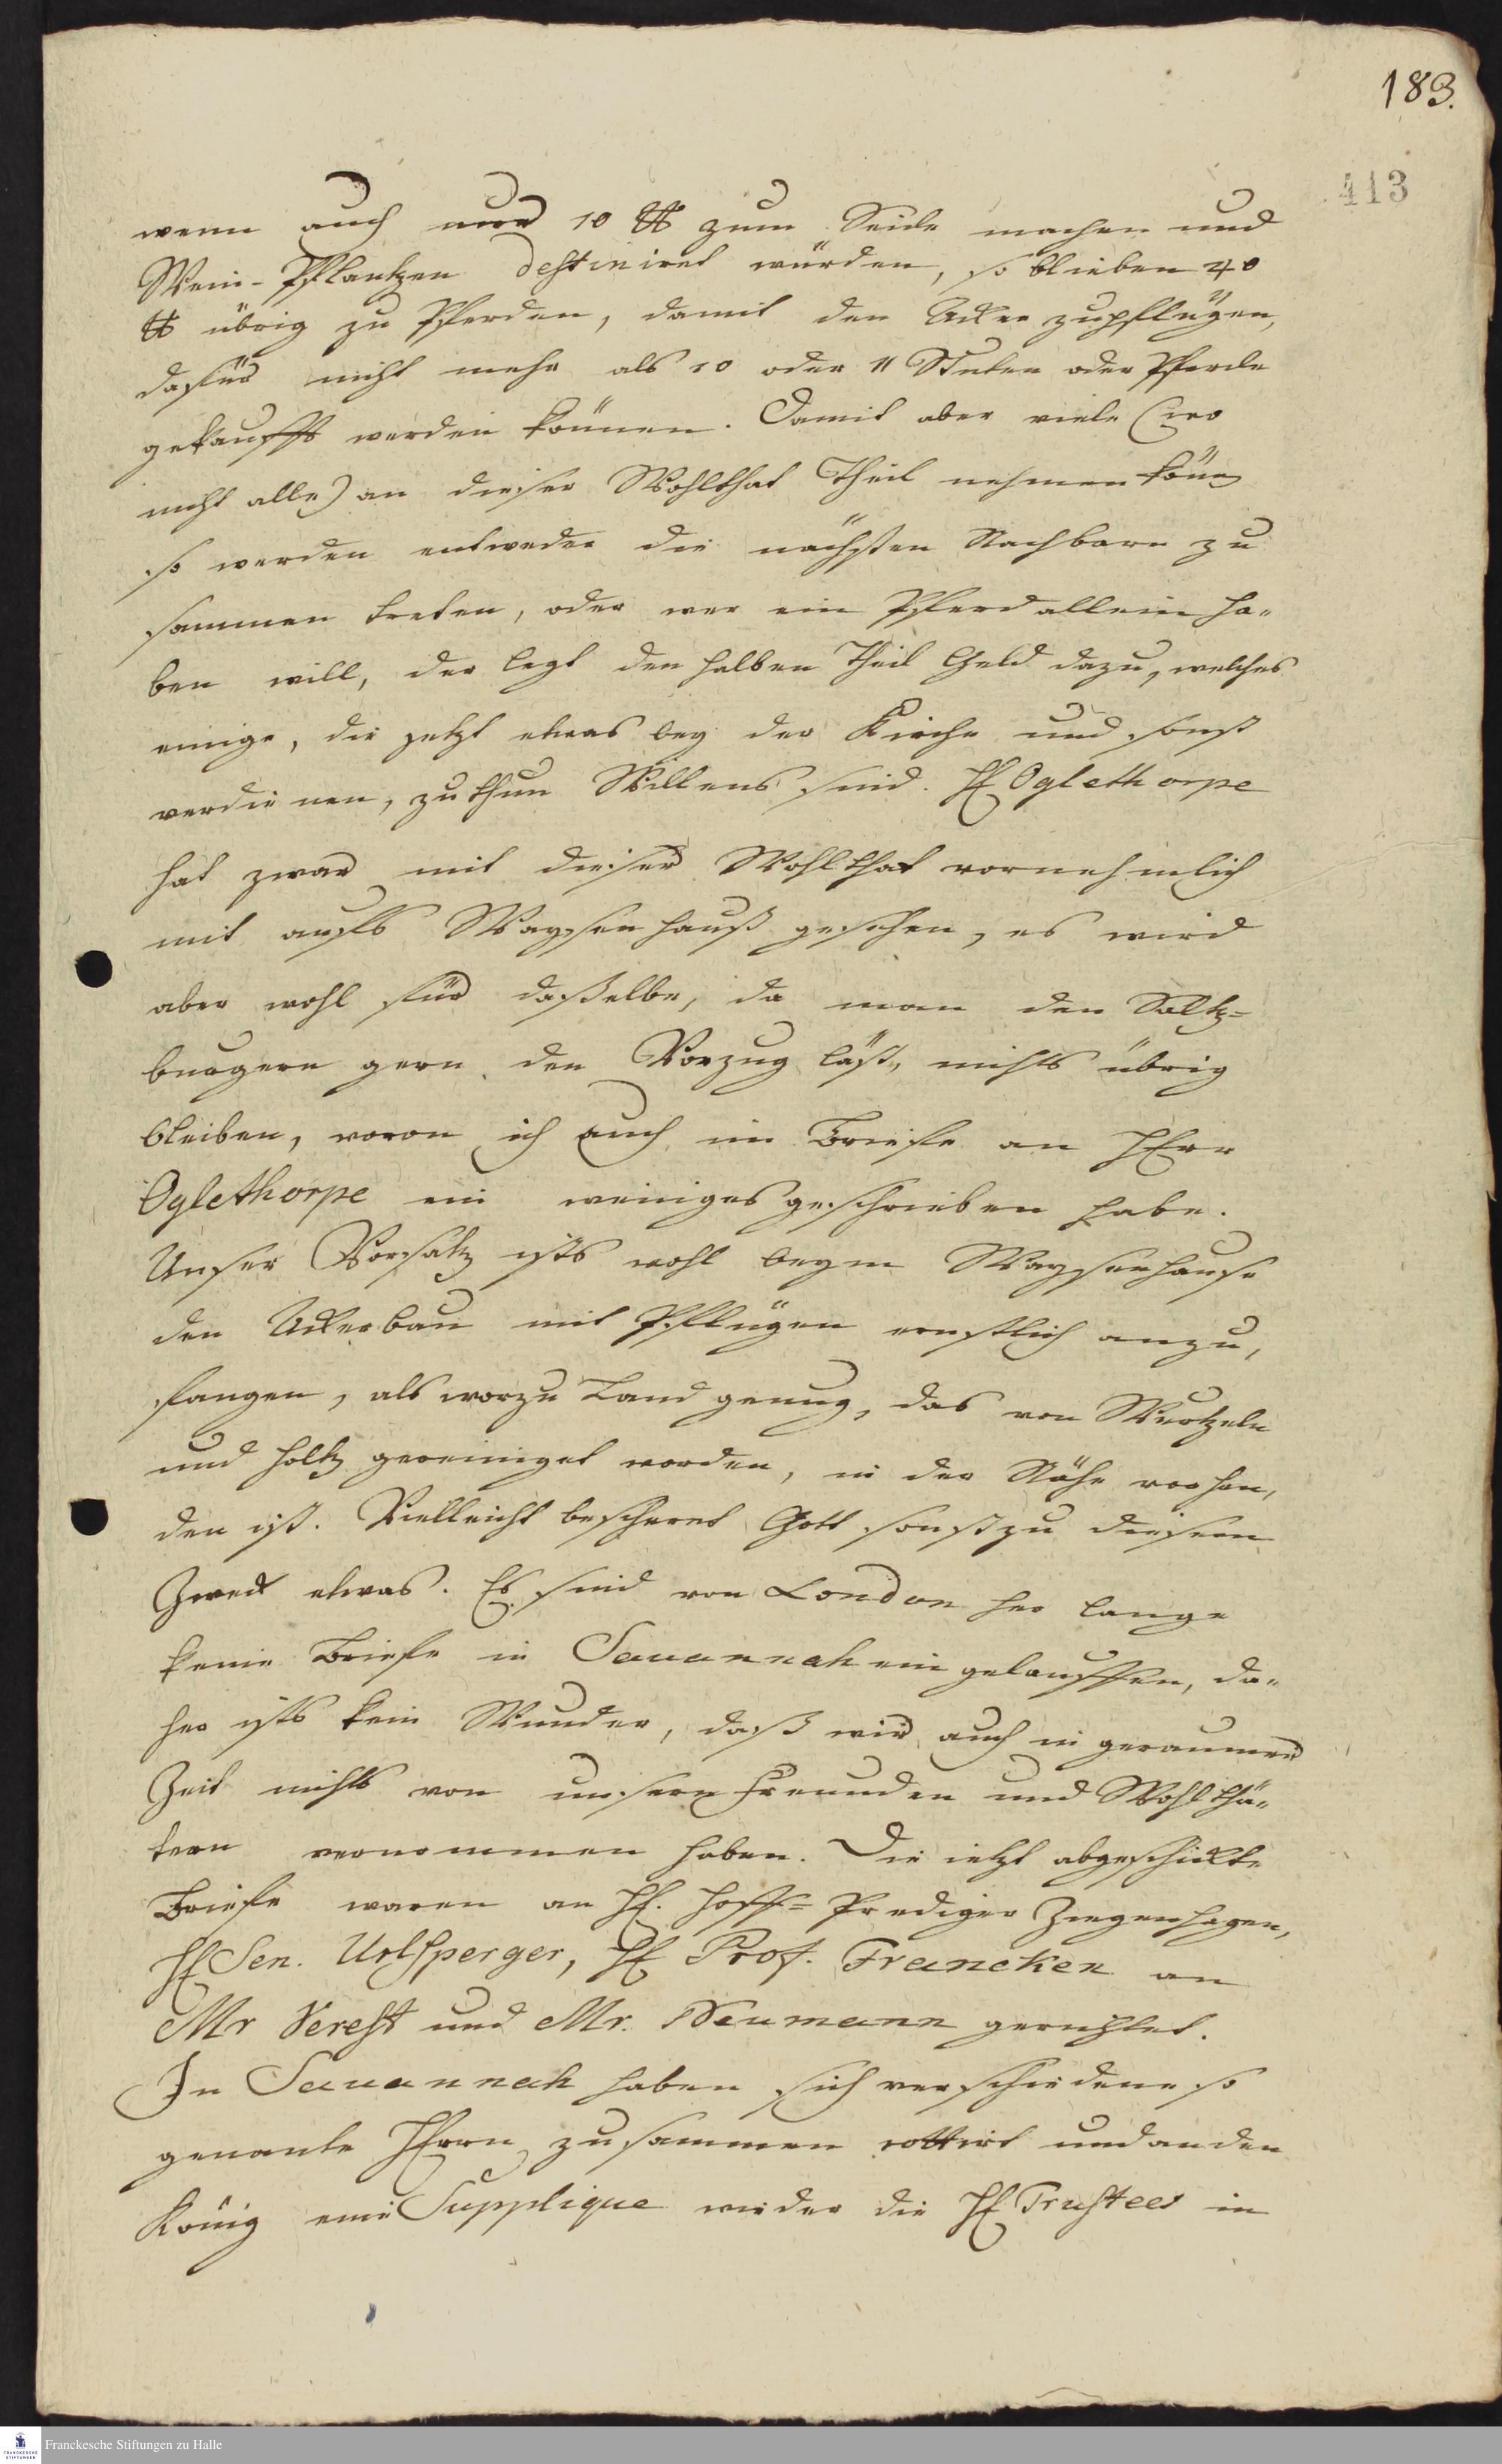 183.
413
wenn auch nur 10 ℔ zum Seide machen und
Wein-Pflantzen destiniret würden, so blieben 40
℔ übrig zu Pferden, damit den Acker zupflügen,
dafür nicht mehr als 10 oder 11 Stuten oder Pferde
gekaufft werden können. Damit aber viele (wo
nicht alle) an dieser Wohlthat Theil nehmen könn
so werden entweder die nächsten Nachbarn zu
sammen treten, oder wer ein Pferd allein ha-
ben will, der legt den halben Theil Geld dazu, welches
einige, die jetzt etwas bey der Kirche und sonst
verdienen, zu thun Willens sind. H Oglethorpe
hat zwar mit dieser Wohlthat vornehmlich
mit aufs Waysenhauß gesehen, es wird
aber wohl für daßelbe, da man den Saltz=
burgern gern den Vorzug läst, nichts übrig
bleiben, wovon ich auch im Briefe an HErr
Oglethorpe ein weniges geschrieben habe.
Unser Vorsatz ists wohl beym Waysenhause
den Ackerbau mit Pflügen ernstlich anzu,
fangen, als worzu Land genug, das von Wurtzeln
und Holtz gereiniget worden, in der Nähe vorhan,
den ist. Vielleicht bescheret Gott sonst zu diesem
Zweck etwas. Es sind von London her lange
keine Briefe in Savannah eingelauffen, da-
her ists kein Wunder, daß wir auch in geraumer
Zeit nichts von unsern Freunden und Wohlthä-
tern vernommen haben. Die jetzt abgeschickte
Briefe waren an H. Hoff= Prediger Ziegenhagen,
H Sen. Urlsperger, H Prof. Francken an
Mr Verest und Mr. Neumann gerichtet.
In Savannah haben sich verschiedene so
genante HErrn zusammen rottirt und an den
König eine Supplique wieder die H Trustees in
Franckesche Stiftungen zu Halle